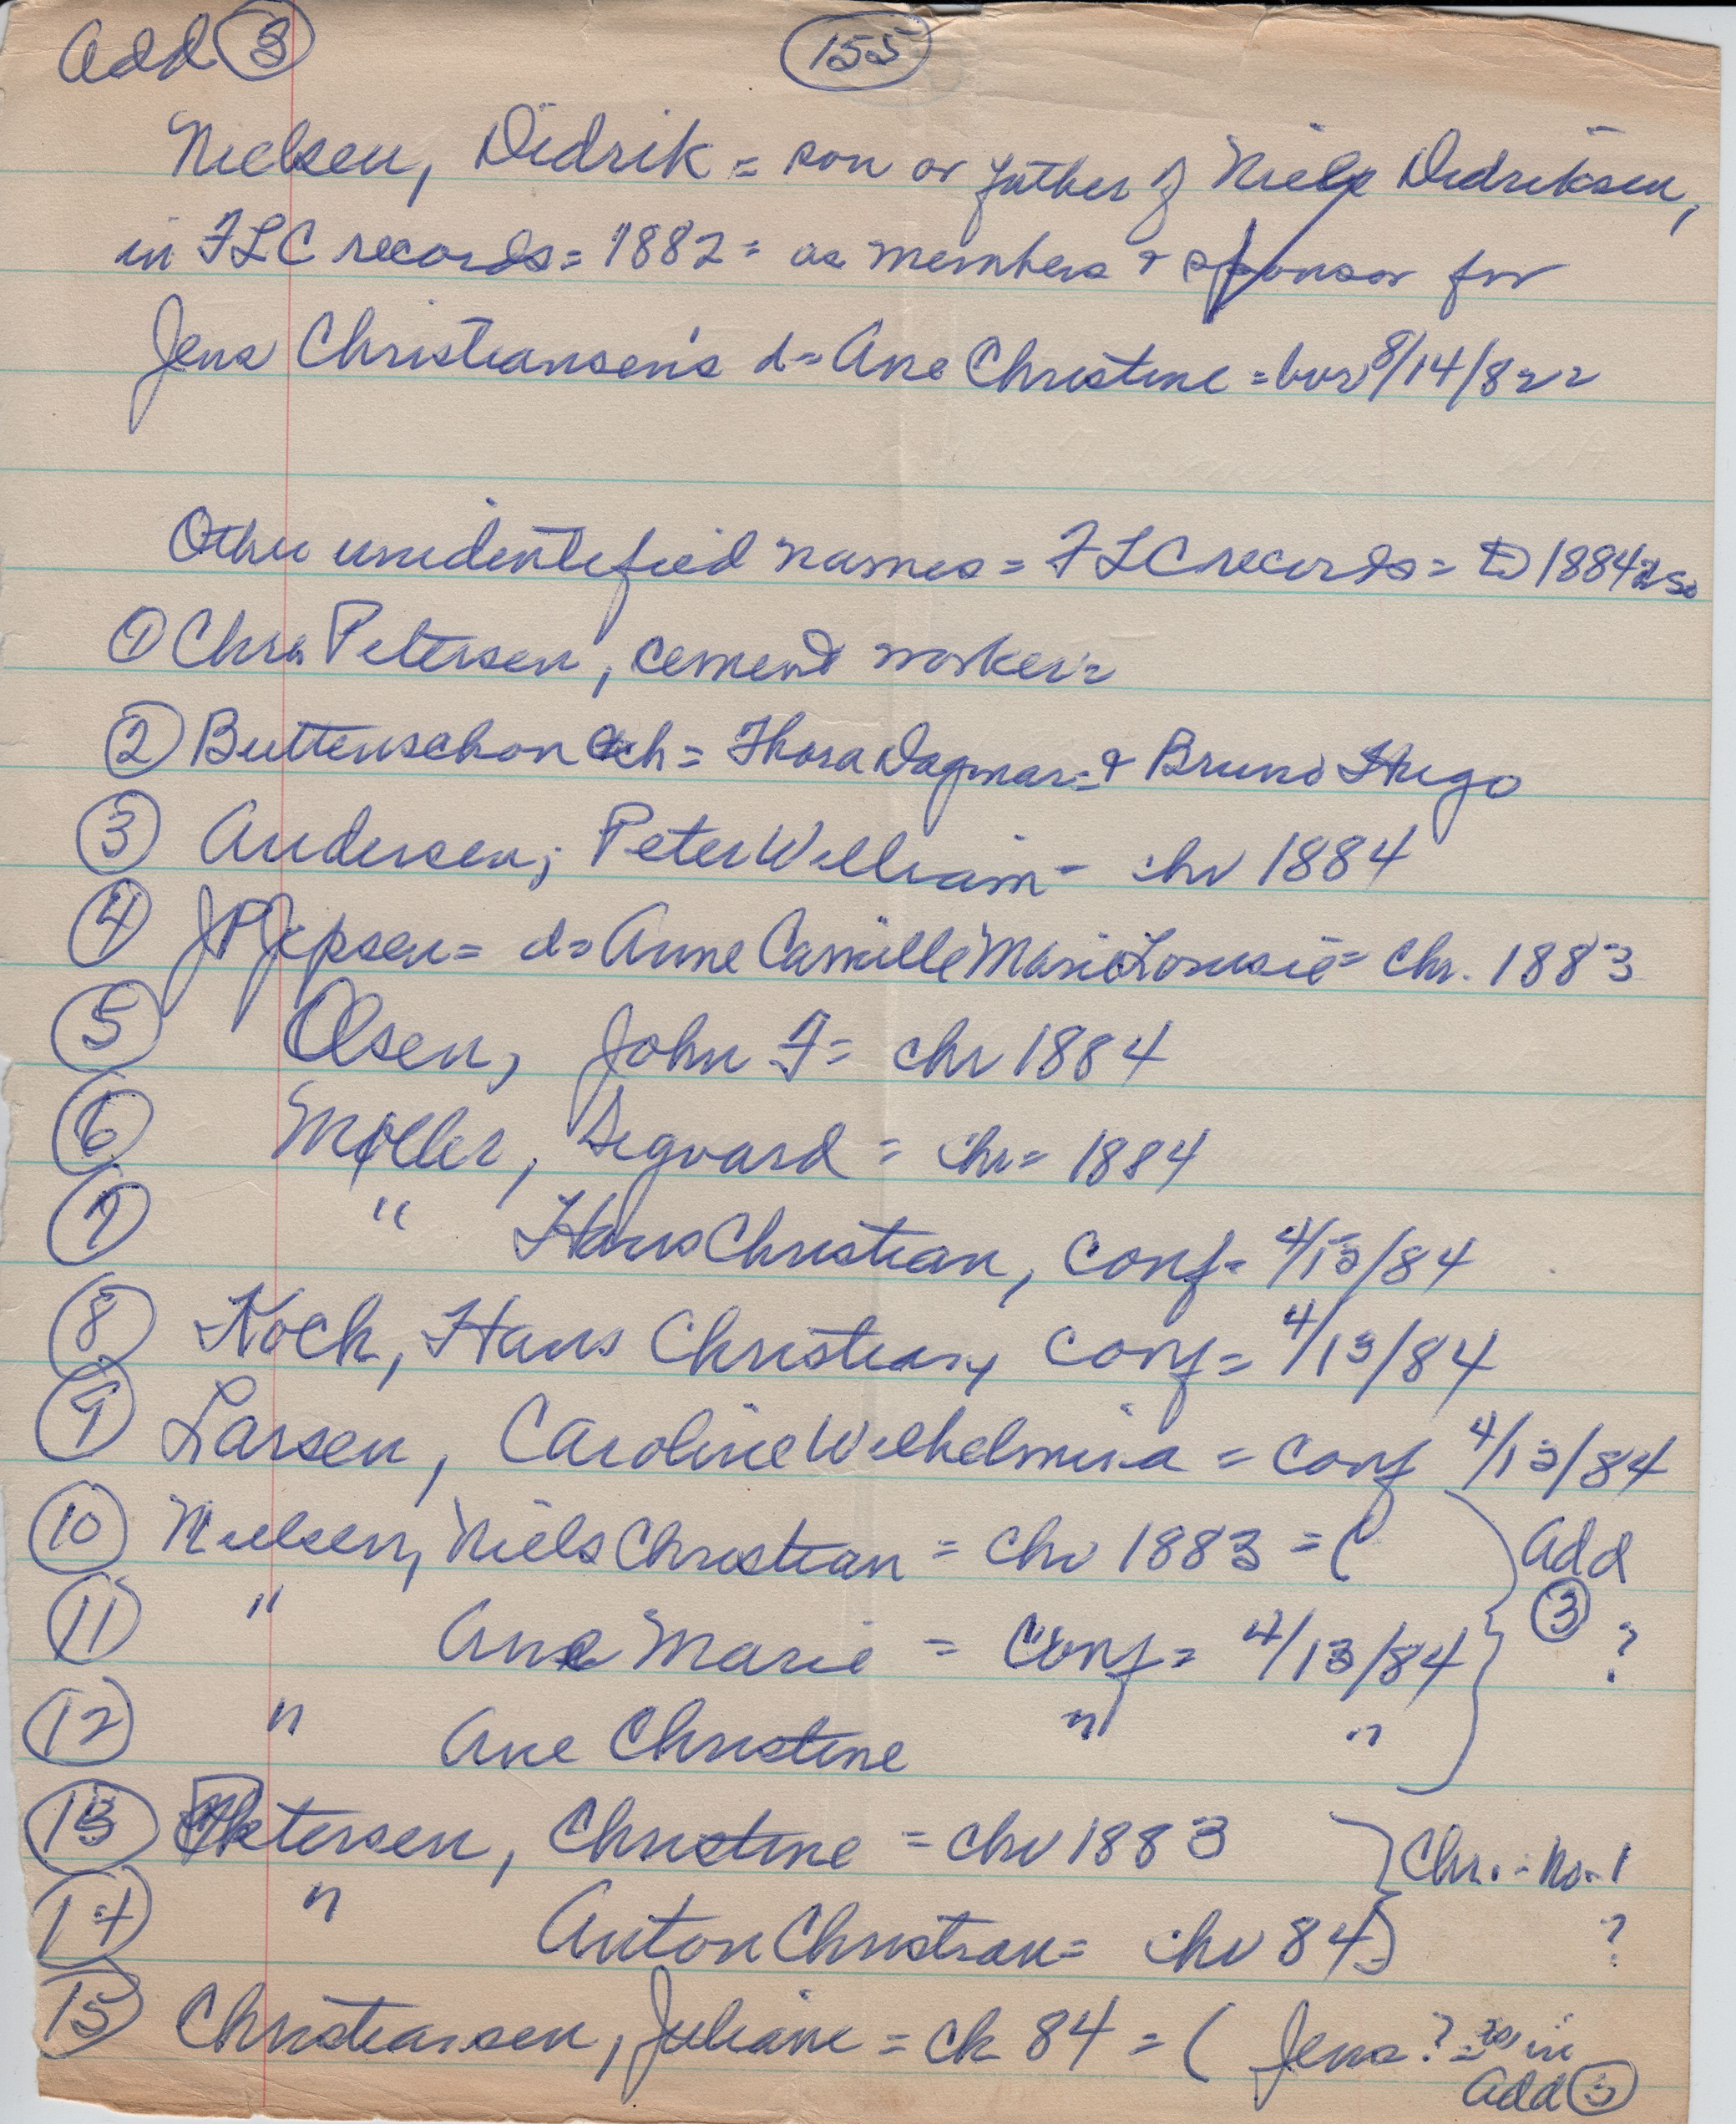 Add ③ 155
Nielsen, Didrik = son or father of Niels Didriksen,
in FLC records = 1882 = as members & sponsor for
Jens Christiansen's d= Ane Christine = bor 8/14/82
Other unidentified names = FLC records = 1884
① Chrs Petersen, cement worker
② Buttenschon ch = Thora Dagmar = & Bruno Hugo
③ Andersen, Peter William - chr 1884
④ JP Jepsen = d= Anne Camille Marie Lousie = Chr. 1883
⑤ Olsen, John F = chr 1884
⑥ Møller, Segvard = chr = 1884
⑦ " Hans Christian, Conf = 4/13/84
⑧ Koch, Hans Christian, Conf = 4/13/84
⑨ Larsen, Caroline Wilhelmina = Conf 4/13/84
⑩ Nielsen, Niels Christian = chr 1883 = ( Add
⑪ " Ane Marie = Conf = 4/13/84 ③ ?
⑫ " Ane Christine " "
⑬ Petersen, Christine = chr 1883 } Chr. - no. 1
⑭ " Anton Christian = chr 84 ?
⑮ Christiansen, Juliane = ch 84 = ( Jens ? = in
Add